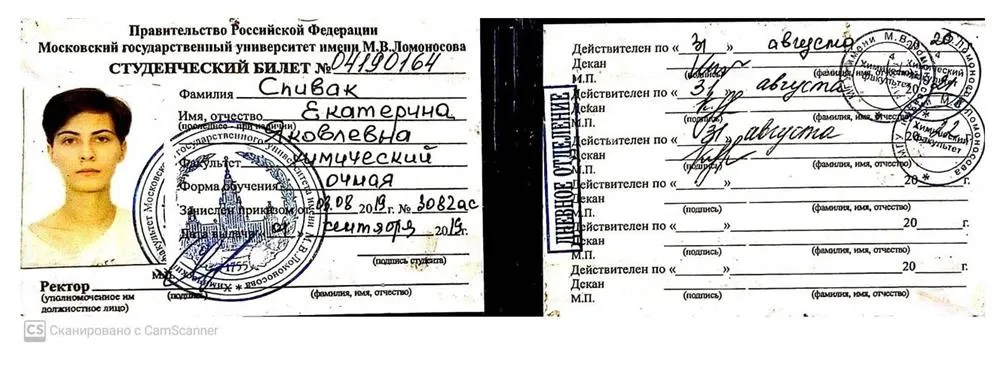 Правительство Российской Федерации
Московский государственный университет имени М.В.Ломоносова
СТУДЕНЧЕСКИЙ БИЛЕТ № 04190164
Фамилия Спивак
Имя, отчество Екатерина
(последнее - при наличии) Яковлевна
Факультет химический
Форма обучения очная
Зачислен приказом от 08.08 2019 г. № 3082ас
Дата выдачи 01 сентября 2019 г.
(подпись студента)
М.П.
Ректор
(уполномоченное им должностное лицо)
(подпись) (фамилия, имя, отчество)
1755
ДНЕВНОЕ ОТДЕЛЕНИЕ
Действителен по « 31 » августа 20 20
Декан
(подпись) (фамилия, имя, отчество)
М.П.
Действителен по « 31 » августа 20 21
Декан
(подпись) (фамилия, имя, отчество)
М.П.
Действителен по « 31 » августа 20
Декан
(подпись) (фамилия, имя, отчество)
М.П.
Действителен по « » 20 г.
Декан
(подпись) (фамилия, имя, отчество)
М.П.
Действителен по « » 20 г.
Декан
(подпись) (фамилия, имя, отчество)
М.П.
Действителен по « » 20 г.
Декан
(подпись) (фамилия, имя, отчество)
М.П.
Химический факультет
Химический факультет
CS Сканировано с CamScanner